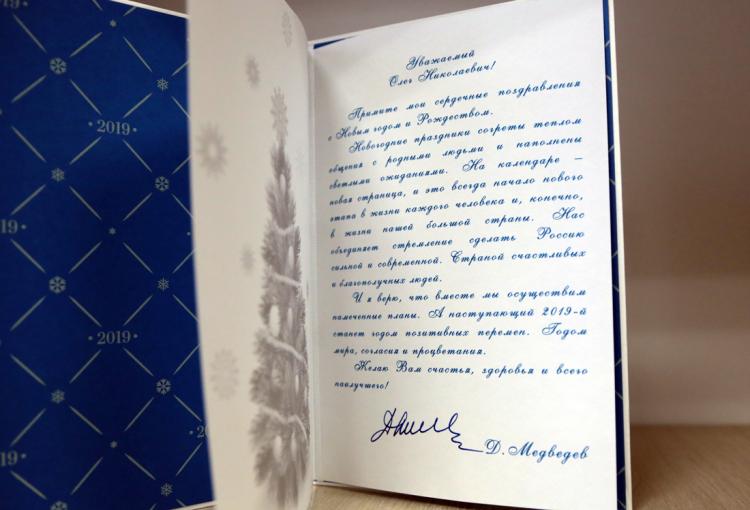 2019
2019
2019
19
19
2
Уважаемый
Олег Николаевич!
Примите мои сердечные поздравления
с Новым годом и Рождеством.
Новогодние праздники согреты теплом
общения с родными людьми и наполнены
светлыми ожиданиями. На календаре –
новая страница, и это всегда начало нового
этапа в жизни каждого человека и, конечно,
в жизни нашей большой страны. Нас
объединяет стремление сделать Россию
сильной и современной. Страной счастливых
и благополучных людей.
И я верю, что вместе мы осуществим
намеченные планы. А наступающий 2019-й
станет годом позитивных перемен. Годом
мира, согласия и процветания.
Желаю Вам счастья, здоровья и всего
наилучшего!
Д. Медведев